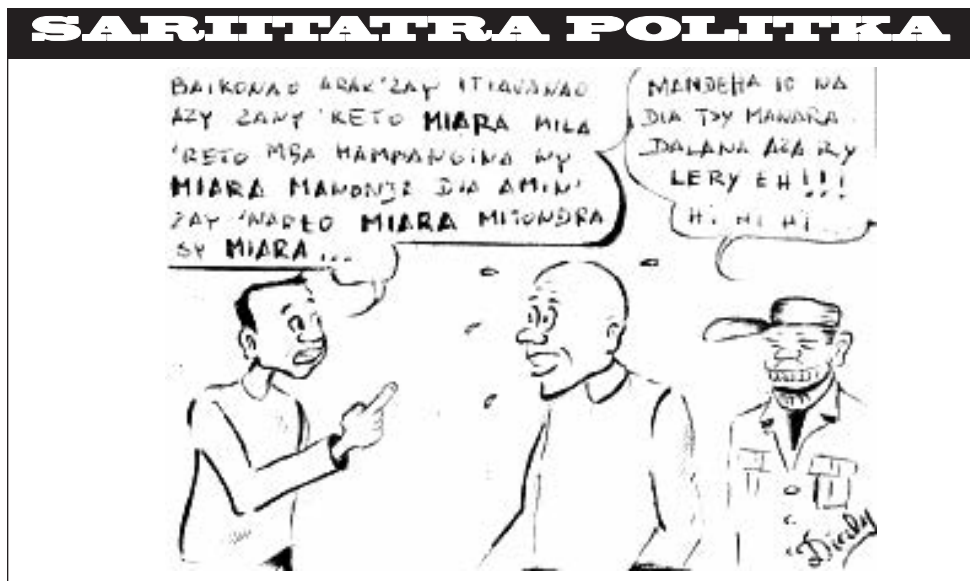 SARIITATRA POLITKA
BAIKONAO ARAK'ZAY ITIAVANAO
AZY ZANY 'RETO MIARA MILA
'RETO MBA HAMPANGINA NY
MIARA MANONJA DIA AMIN'
ZAY 'NAREO MIARA MITONDRA
SY MIARA...
MANDEHA IO NA
DIA TSY MANARA
DALANA AZA RY
LERY EH!!!
HI HI HI...